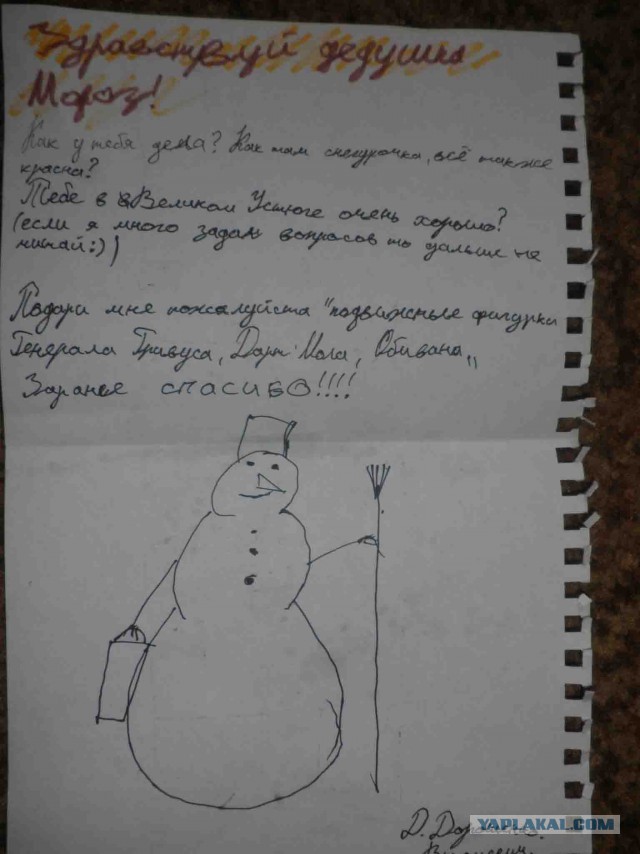 Здравствуй дедушка
Мороз!
Как у тебя дела? Как там снегурочка, всё так же
красна?
Тебе в Великом Устюге очень хорошо?
(если я много задал вопросов то дальше не
читай:))
Подари мне пожалуйста "подвижные фигурки
Генерала Гривуса, Дарт Мола, Обивана"
Заранее спасибо!!!!
Д.
YAPLAKAL.COM